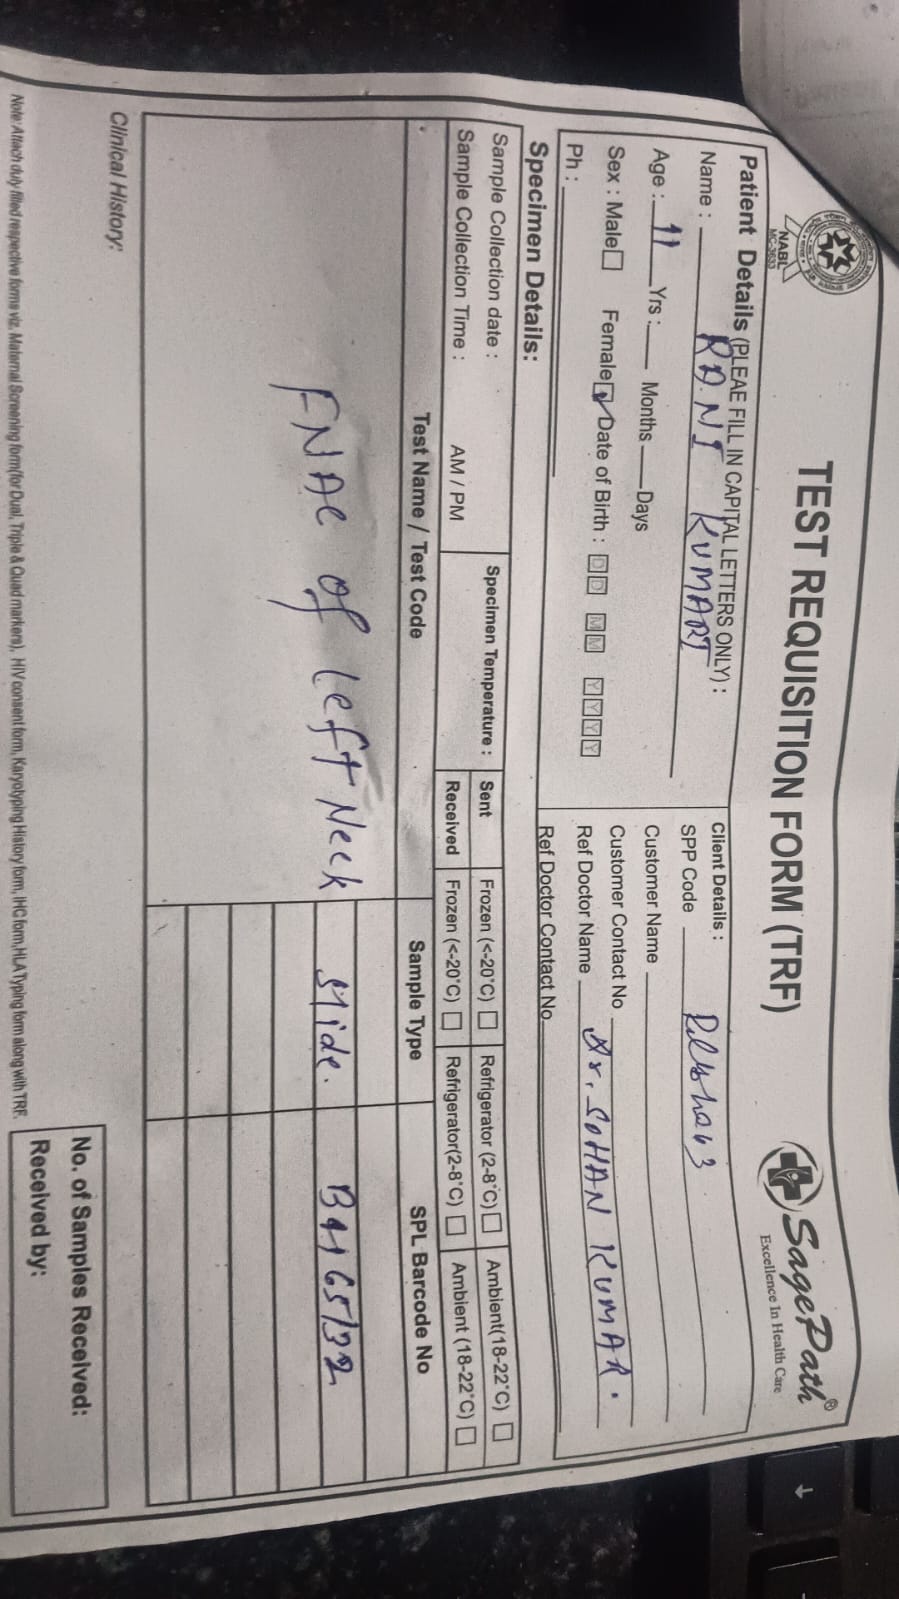 NABL
MC-3633
TEST REQUISITION FORM (TRF)
SagePath®
Excellence In Health Care
Patient Details (PLEAE FILL IN CAPITAL LETTERS ONLY) :
Name : RANI KUMARI
Age : 11 Yrs : Months Days
Sex : Male Female ✓ Date of Birth : DD MM YYYY
Ph :
Client Details :
SPP Code
Customer Name
Customer Contact No
Ref Doctor Name Dr. SOHAN KUMAR.
Ref Doctor Contact No
Specimen Details:
Sample Collection date :
Sample Collection Time : AM / PM
Specimen Temperature :
Sent Frozen (<-20°C) Refrigerator (2-8°C) Ambient(18-22°C)
Received Frozen (<-20°C) Refrigerator(2-8°C) Ambient (18-22°C)
Test Name / Test Code Sample Type SPL Barcode No
FNAC of Left Neck Slide.
Clinical History:
No. of Samples Received:
Received by:
Note: Attach duly filled respective forms viz. Maternal Screening form(for Dual, Triple & Quad markers), HIV consent form, Karyotyping History form, IHC form, HLA Typing form along with TRF.